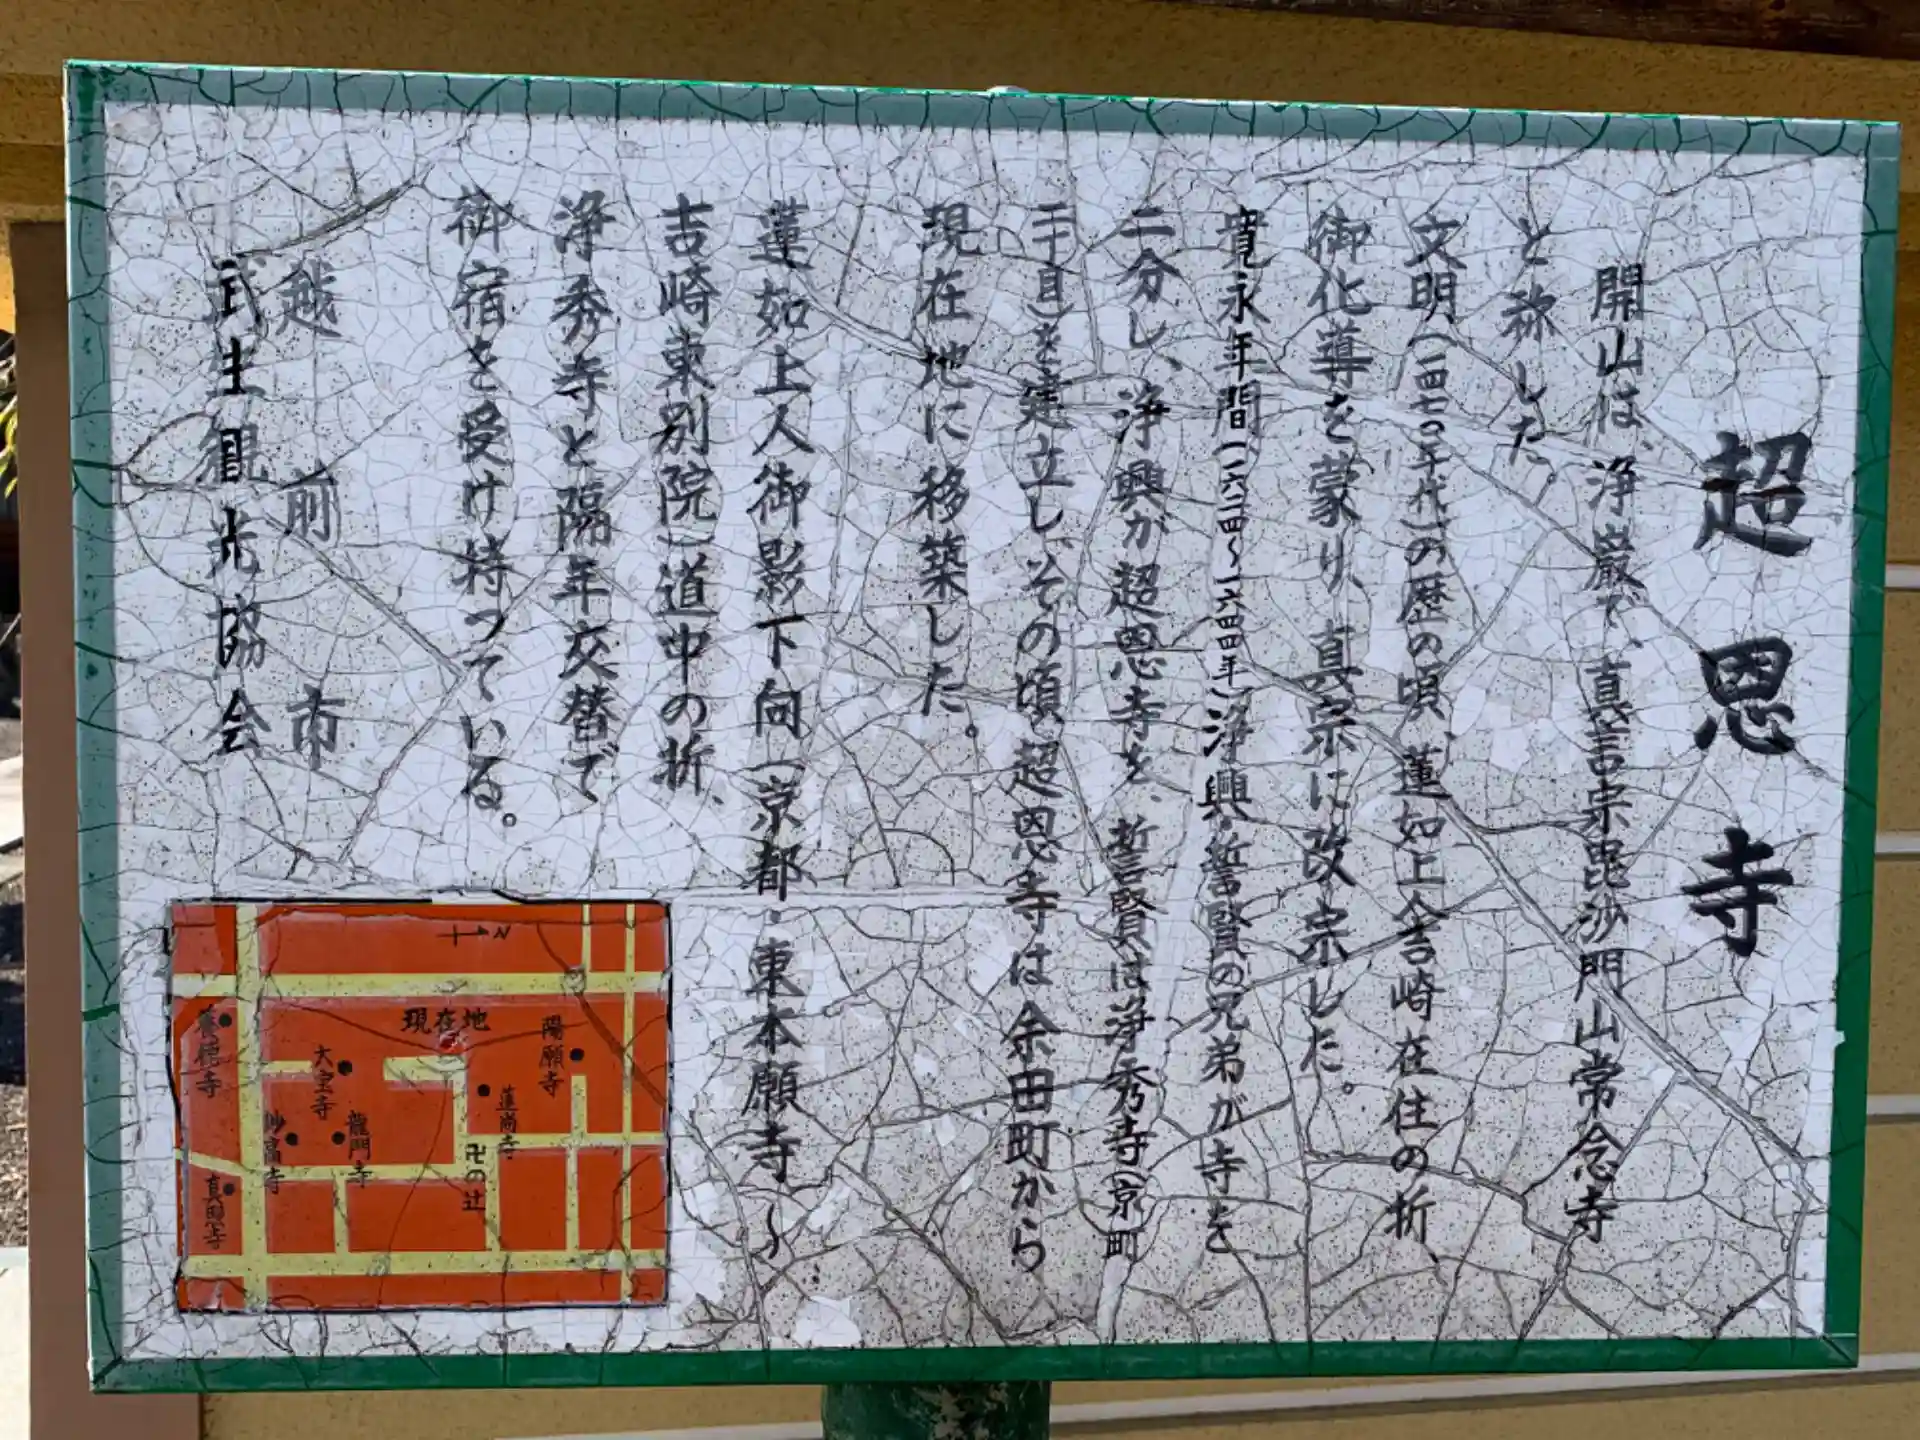 超恩寺
開山は、浄巌で、真言宗毘沙門山常念寺
と称した
文明(一四七〇年代)の歴の頃、蓮如上人吉崎在住の折、
御化導を蒙り、真宗に改宗した。
寛永年間(一六二四～一六四四年)浄興・誓賢の兄弟が寺を
二分し、浄興が超恩寺を、誓賢は浄秀寺(京町
二丁目)を建立し、その頃、超恩寺は余田町から
現在地に移築した。
蓮如上人御影下向(京都・東本願寺～
吉崎東別院)道中の折、
浄秀寺と隔年交替で
御宿を受け持っている。
越前市
武生観光協会
N
現在地
陽願寺
大宝寺
蓮尚寺
龍門寺
妙高寺
卍の辻
真照寺